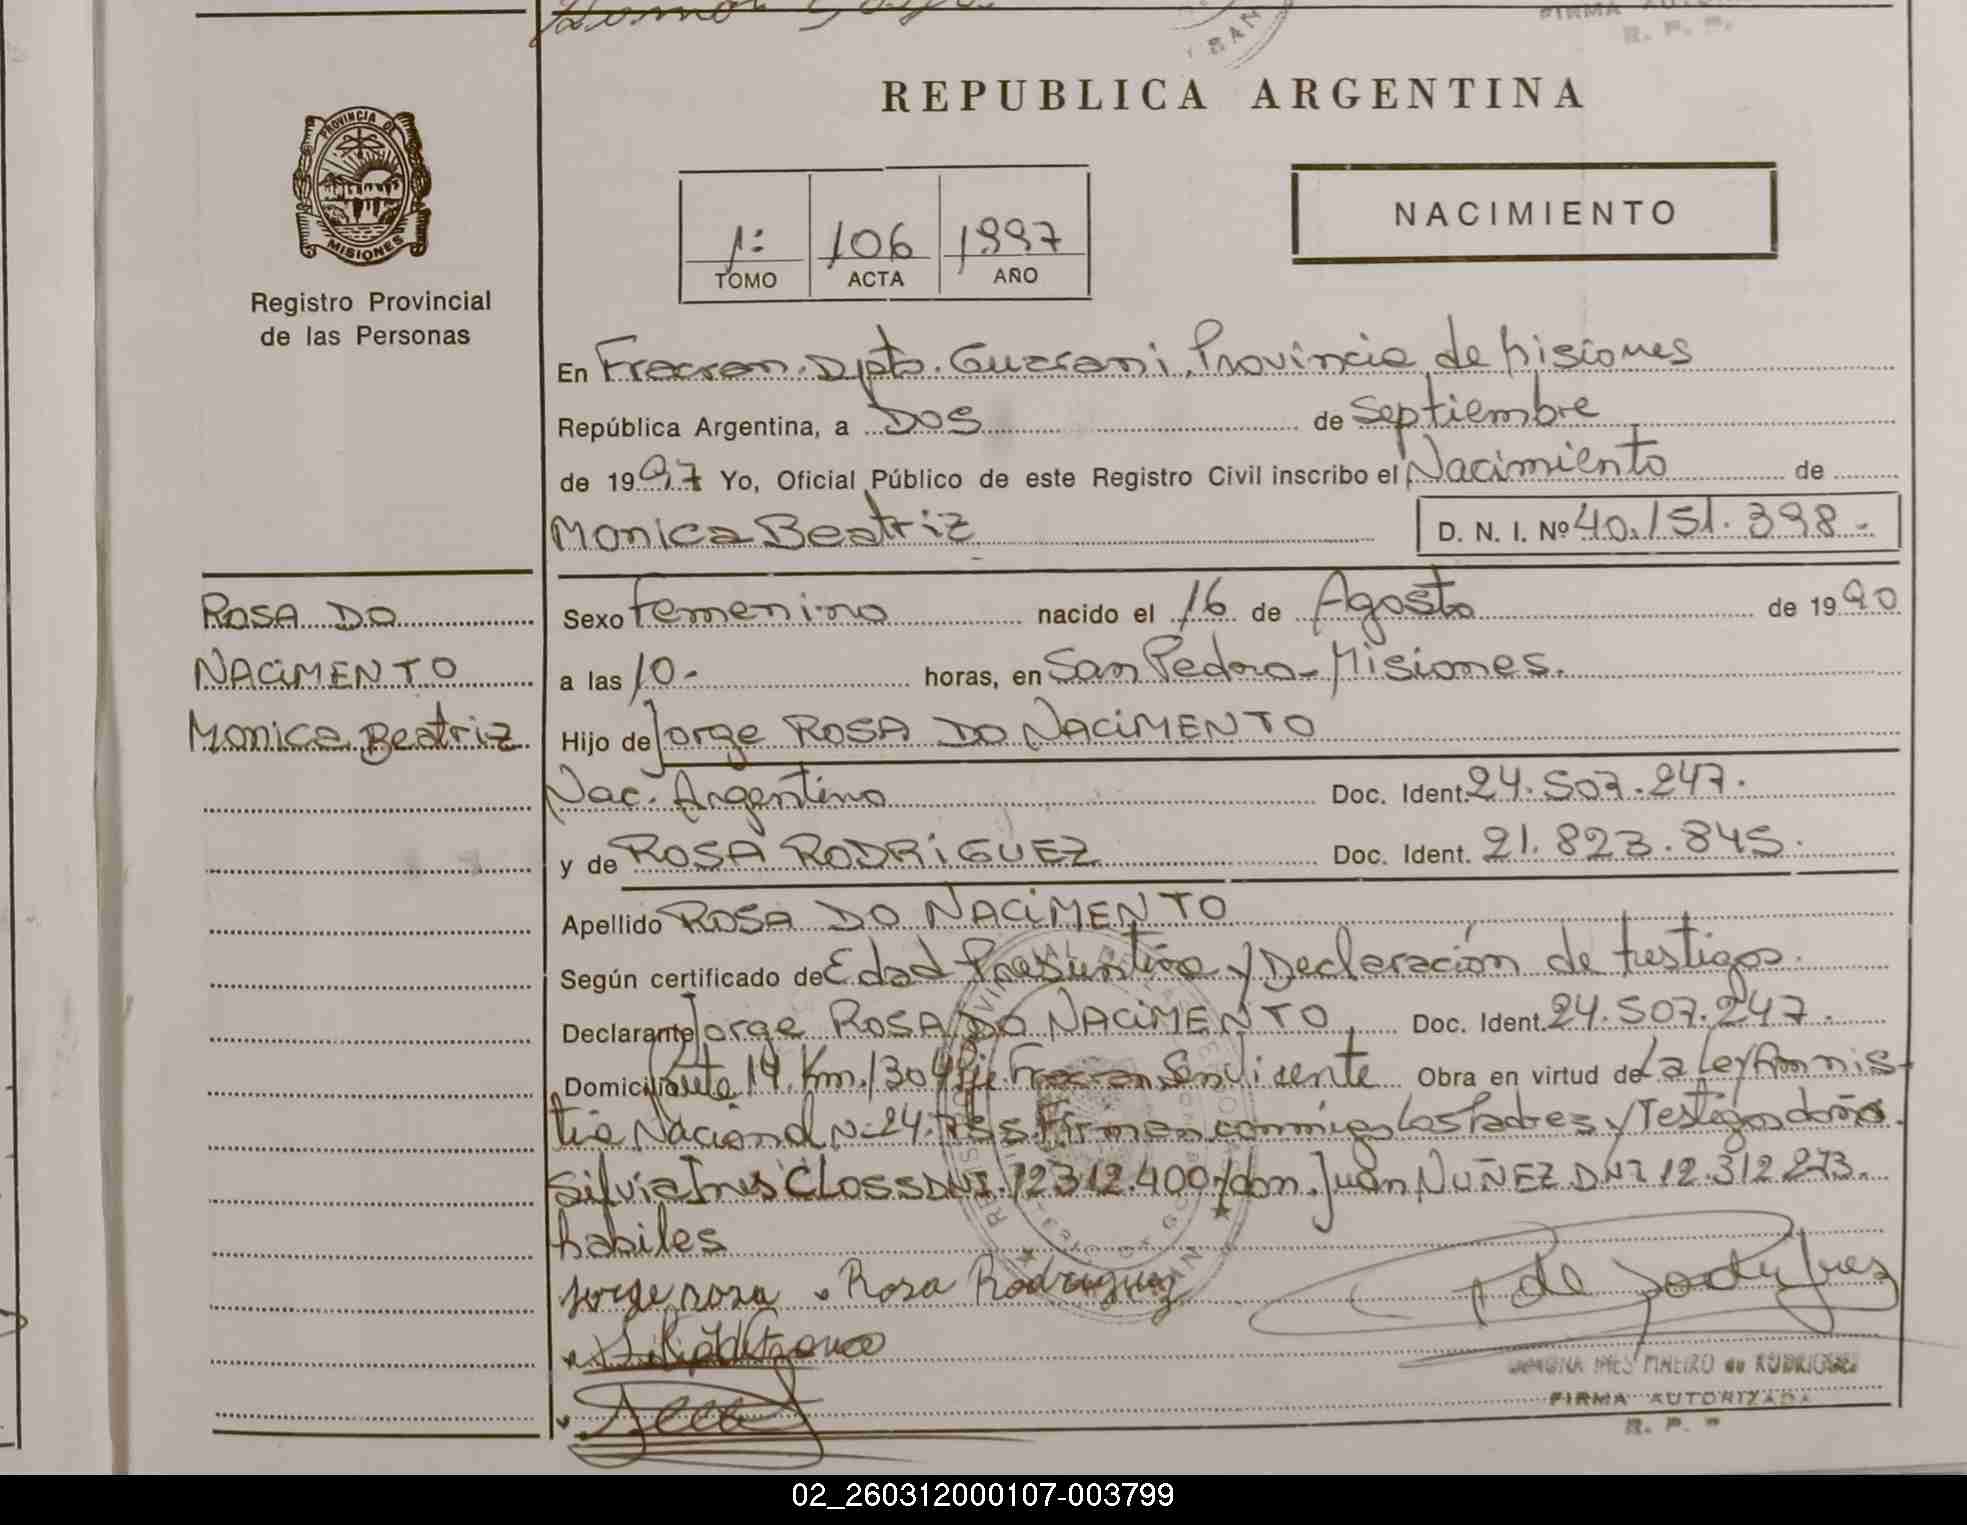 FIRMA
R. P. P.
REPUBLICA ARGENTINA
PROVINCIA DE
MISIONES
Registro Provincial
de las Personas
1º
106
1997
TOMO
ACTA
AÑO
NACIMIENTO
En Fracran. Dpto. Guarani, Provincia de Misiones
República Argentina, a Dos de Septiembre
de 1997 Yo, Oficial Público de este Registro Civil inscribo el Nacimiento de
Monica Beatriz D. N. I. Nº 40.151.398.-
ROSA DO
NACiMENTO
Monica Beatriz
Sexo Femenino nacido el 16 de Agosto de 1990
a las 10- horas, en San Pedro - Misiones.
Hijo de Jorge ROSA DO NACiMENTO
Nac. Argentino Doc. Ident. 24.507.247.
y de ROSA RODRiGUEZ Doc. Ident. 21.823.845.
Apellido ROSA DO NACiMENTO
Según certificado de Edad Presuntiva y Declaración de testigos.
Declarante Jorge ROSA DO NACiMENTO Doc. Ident. 24.507.247.
Domicilio Ruta 14 Km. 1304 Fracran San Vicente Obra en virtud de La Ley Amnis-
tia Nacional Nº 24. Firman conmigo los Padres y Testigos doña
Silvia Ines CLOSS DNI. 12312.400 y don Juan NUÑEZ DNI 12.312.273.
habiles
jorge rosa Rosa Rodriguez
P de Rodriguez
INES PIÑEIRO de RODRIGUEZ
FIRMA AUTORIZADA
R. P. P
02_260312000107-003799